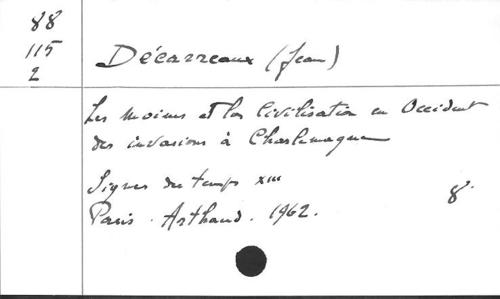 88
115
2
Décarreaux (Jean)
Les moines et la civilisation en Occident
des invasions à Charlemagne
Signes du temps XIII
Paris. Arthaud. 1962.
8°